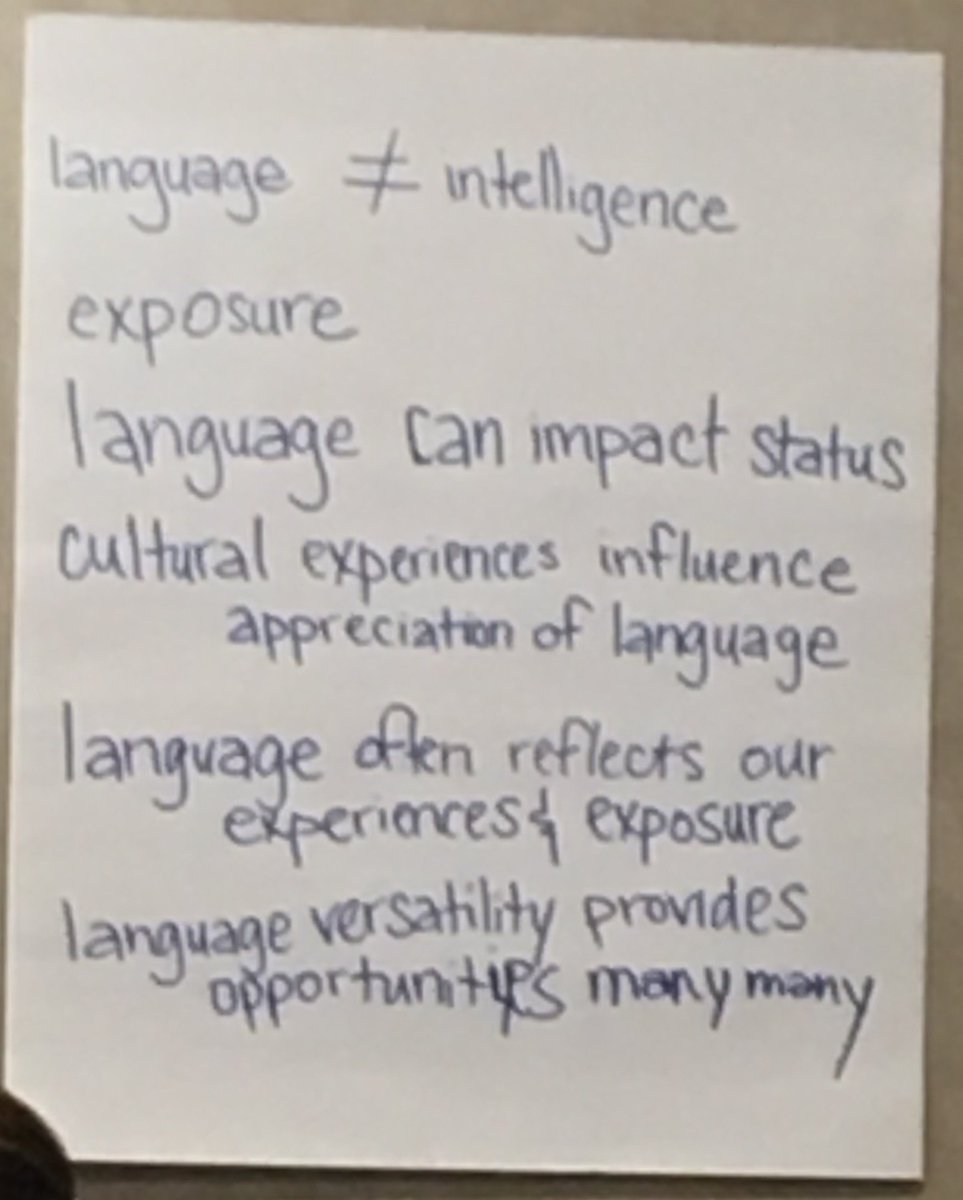 language ≠ intelligence
exposure
language can impact status
cultural experiences influence
appreciation of language
language often reflects our
experiences & exposure
language versatility provides
opportunities many many